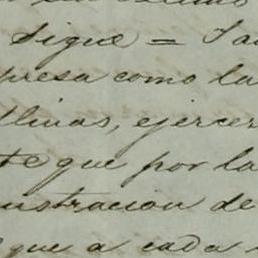 Sigue =
presa como la
llinas, ejercer
te que por la
nistracion de
que a cada